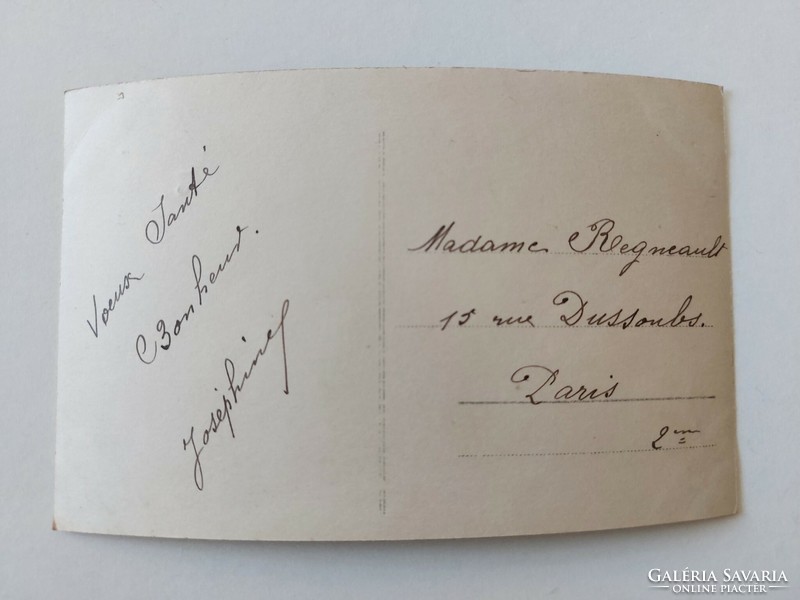 Voeux Santé
Bonheur.
Joséphine
Madame Regneault
15 rue Dussoubs.
Paris
2me
GALÉRIA SAVARIA
ONLINE PIACTÉR